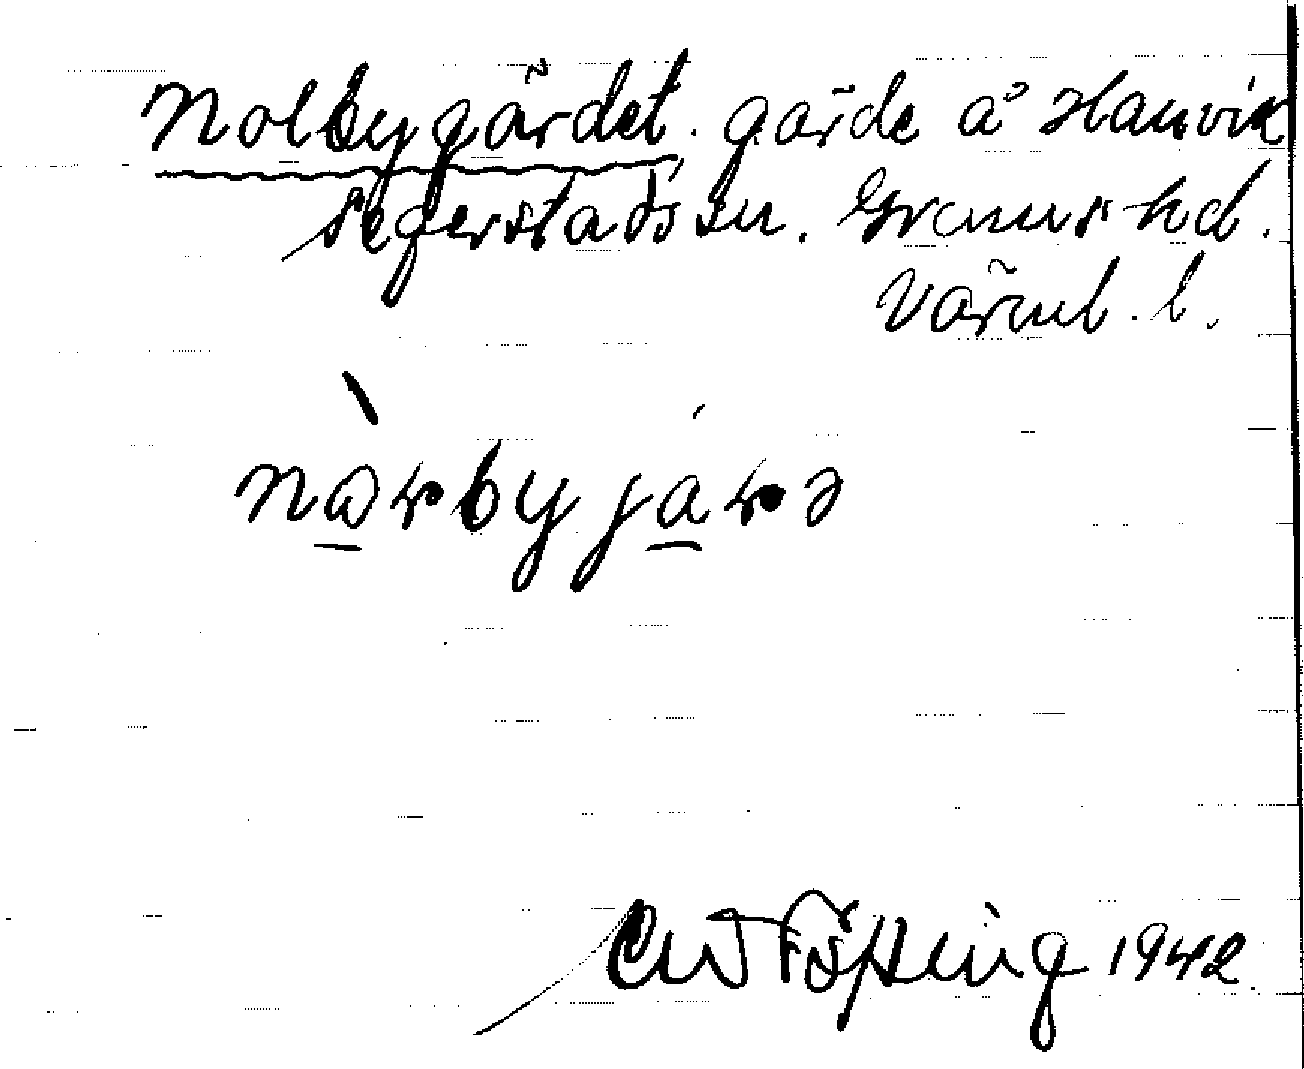 Nolbygärdet. gärde å Hanvik
Segerstads sn. Grums hd.
Värml. l.
nàrbyjárə
1942